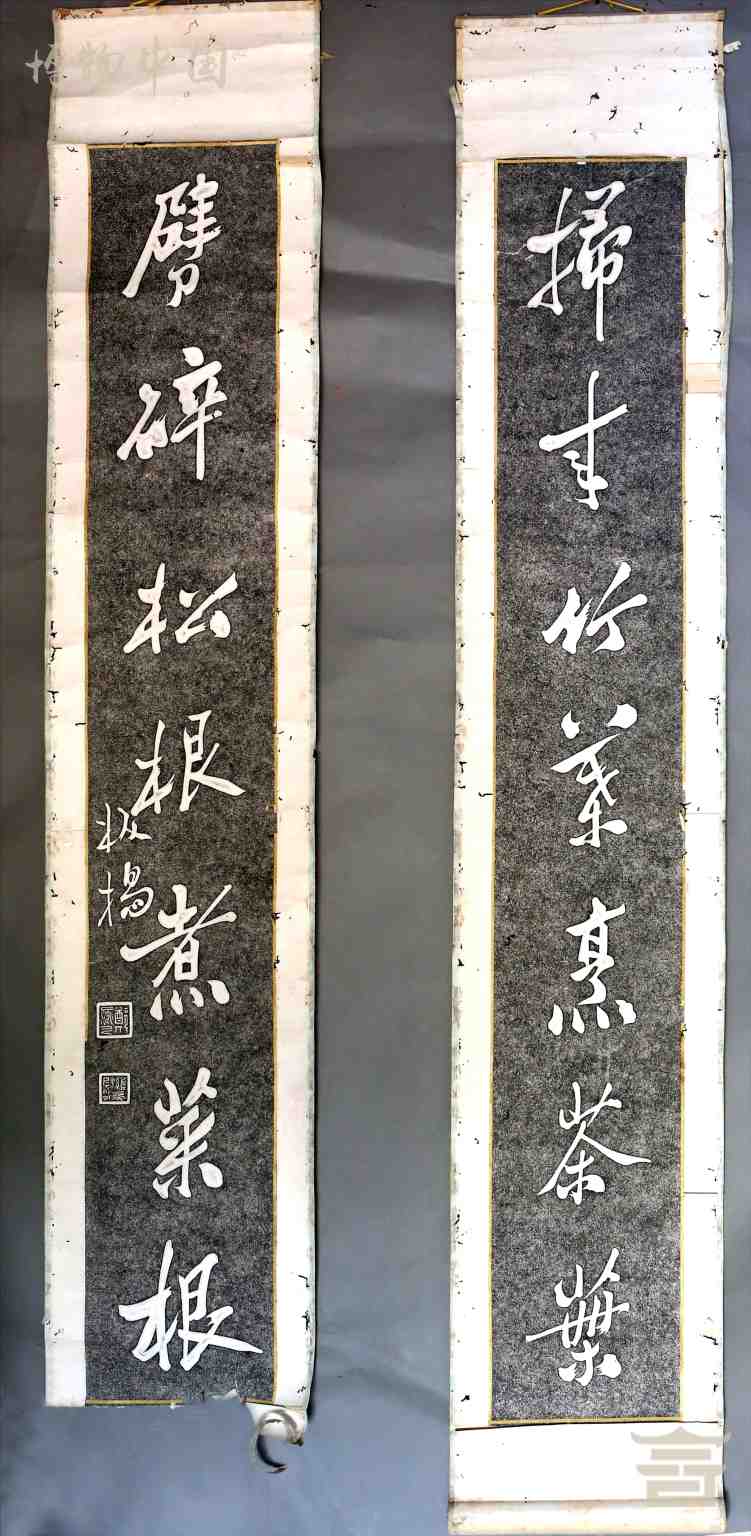 掃来竹葉烹茶葉
劈碎松根煮菜根
板橋
博物中国